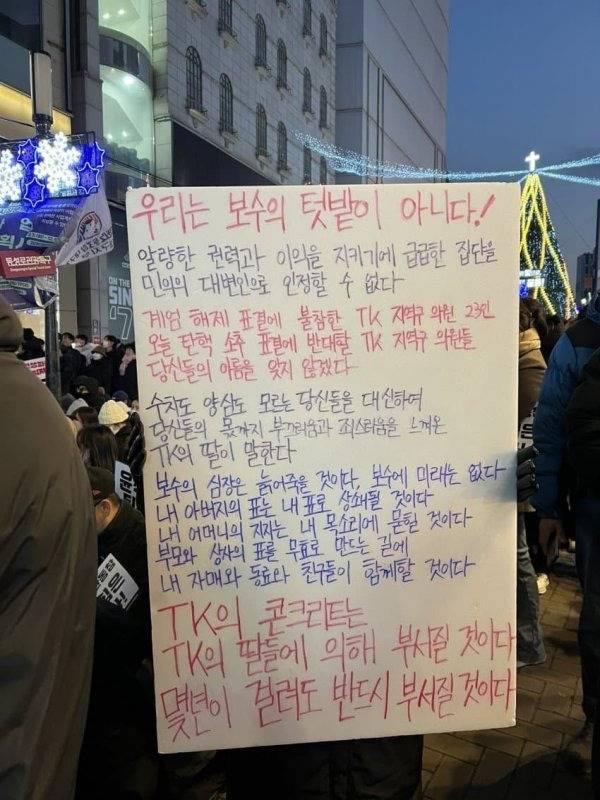 우리는 보수의 텃밭이 아니다!
알량한 권력과 이익을 지키기에 급급한 집단을
민의의 대변인으로 인정할 수 없다
계엄 해제 표결에 불참한 TK 지역구 의원 23인
오늘 탄핵 소추 표결에 반대할 TK 지역구 의원들
당신들의 이름을 잊지 않겠다
수치도 양심도 모르는 당신들을 대신하여
당신들의 몫까지 부끄러움과 죄스러움을 느껴온
TK의 딸이 말한다
보수의 심장은 늙어죽을 것이다, 보수에 미래는 없다
내 아버지의 표는 내 표로 상쇄될 것이다
내 어머니의 지지는 내 목소리에 묻힐 것이다
부모와 상사의 표를 무효로 만드는 길에
내 자매와 동료와 친구들이 함께할 것이다
TK의 콘크리트는
TK의 딸들에 의해 부서질 것이다
몇년이 걸려도 반드시 부서질 것이다
동성로관광특구
ON THE
SIN
'7